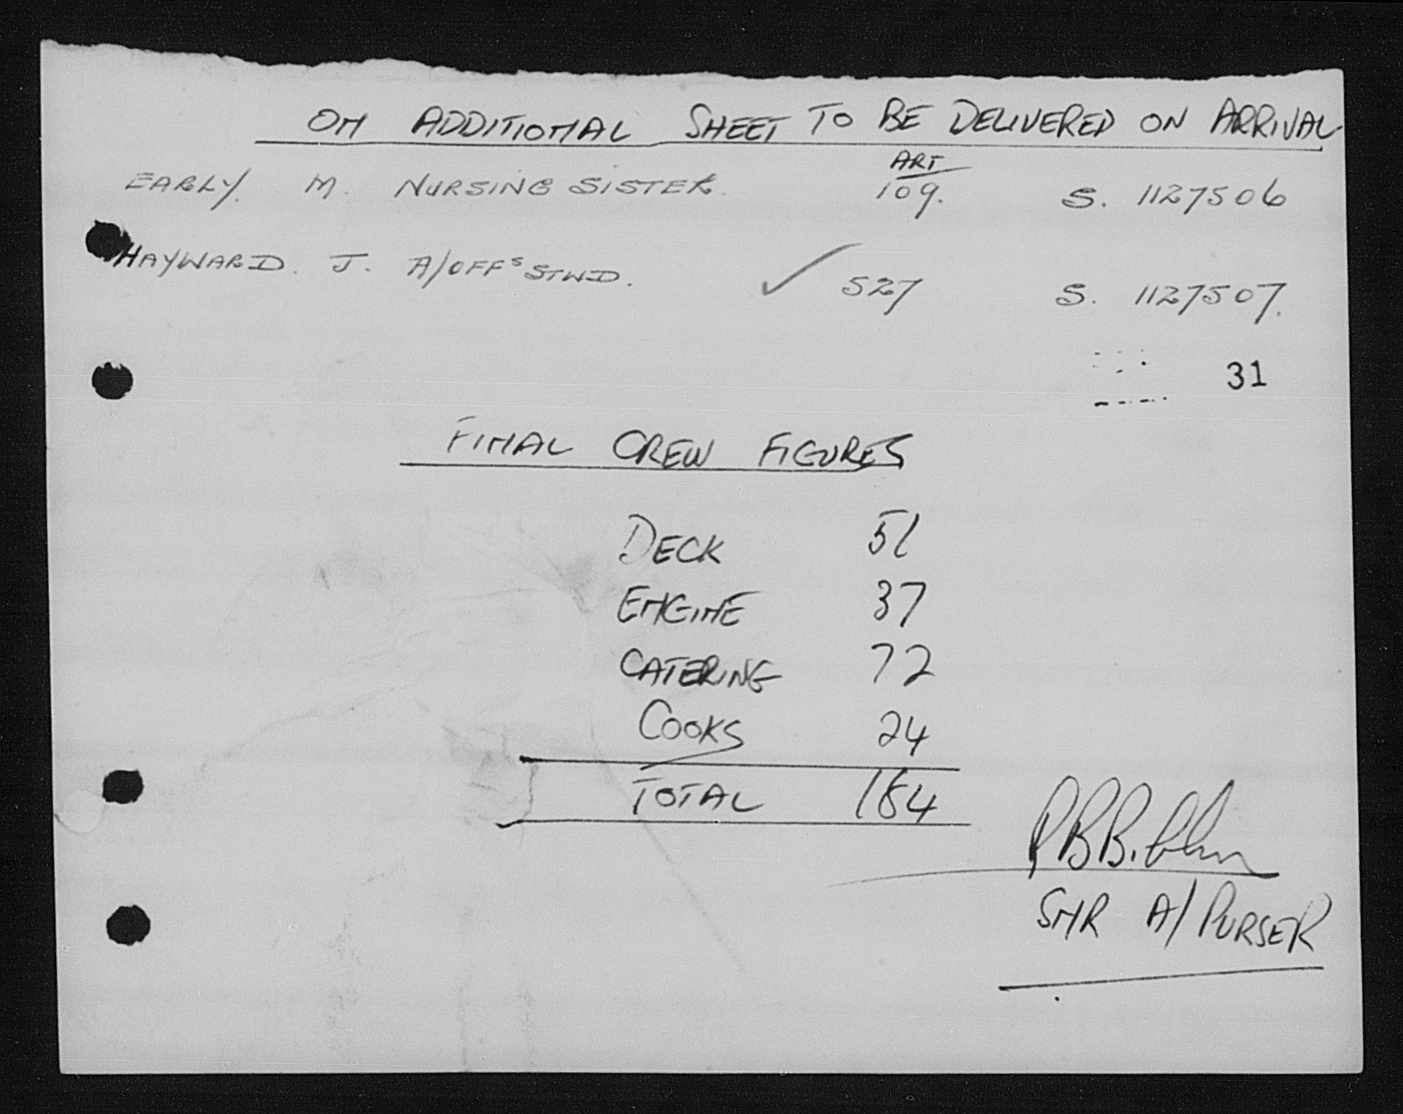 ON ADDITIONAL SHEET TO BE DELIVERED ON ARRIVAL
ART
EARLY. M. NURSING SISTER. 109. S. 1127506
HAYWARD. J. A/OFFS STWD. ✓ 527 S. 1127507.
31
FINAL CREW FIGURES
DECK 51
ENGINE 37
CATERING 72
COOKS 24
TOTAL 184
SNR A/PURSER